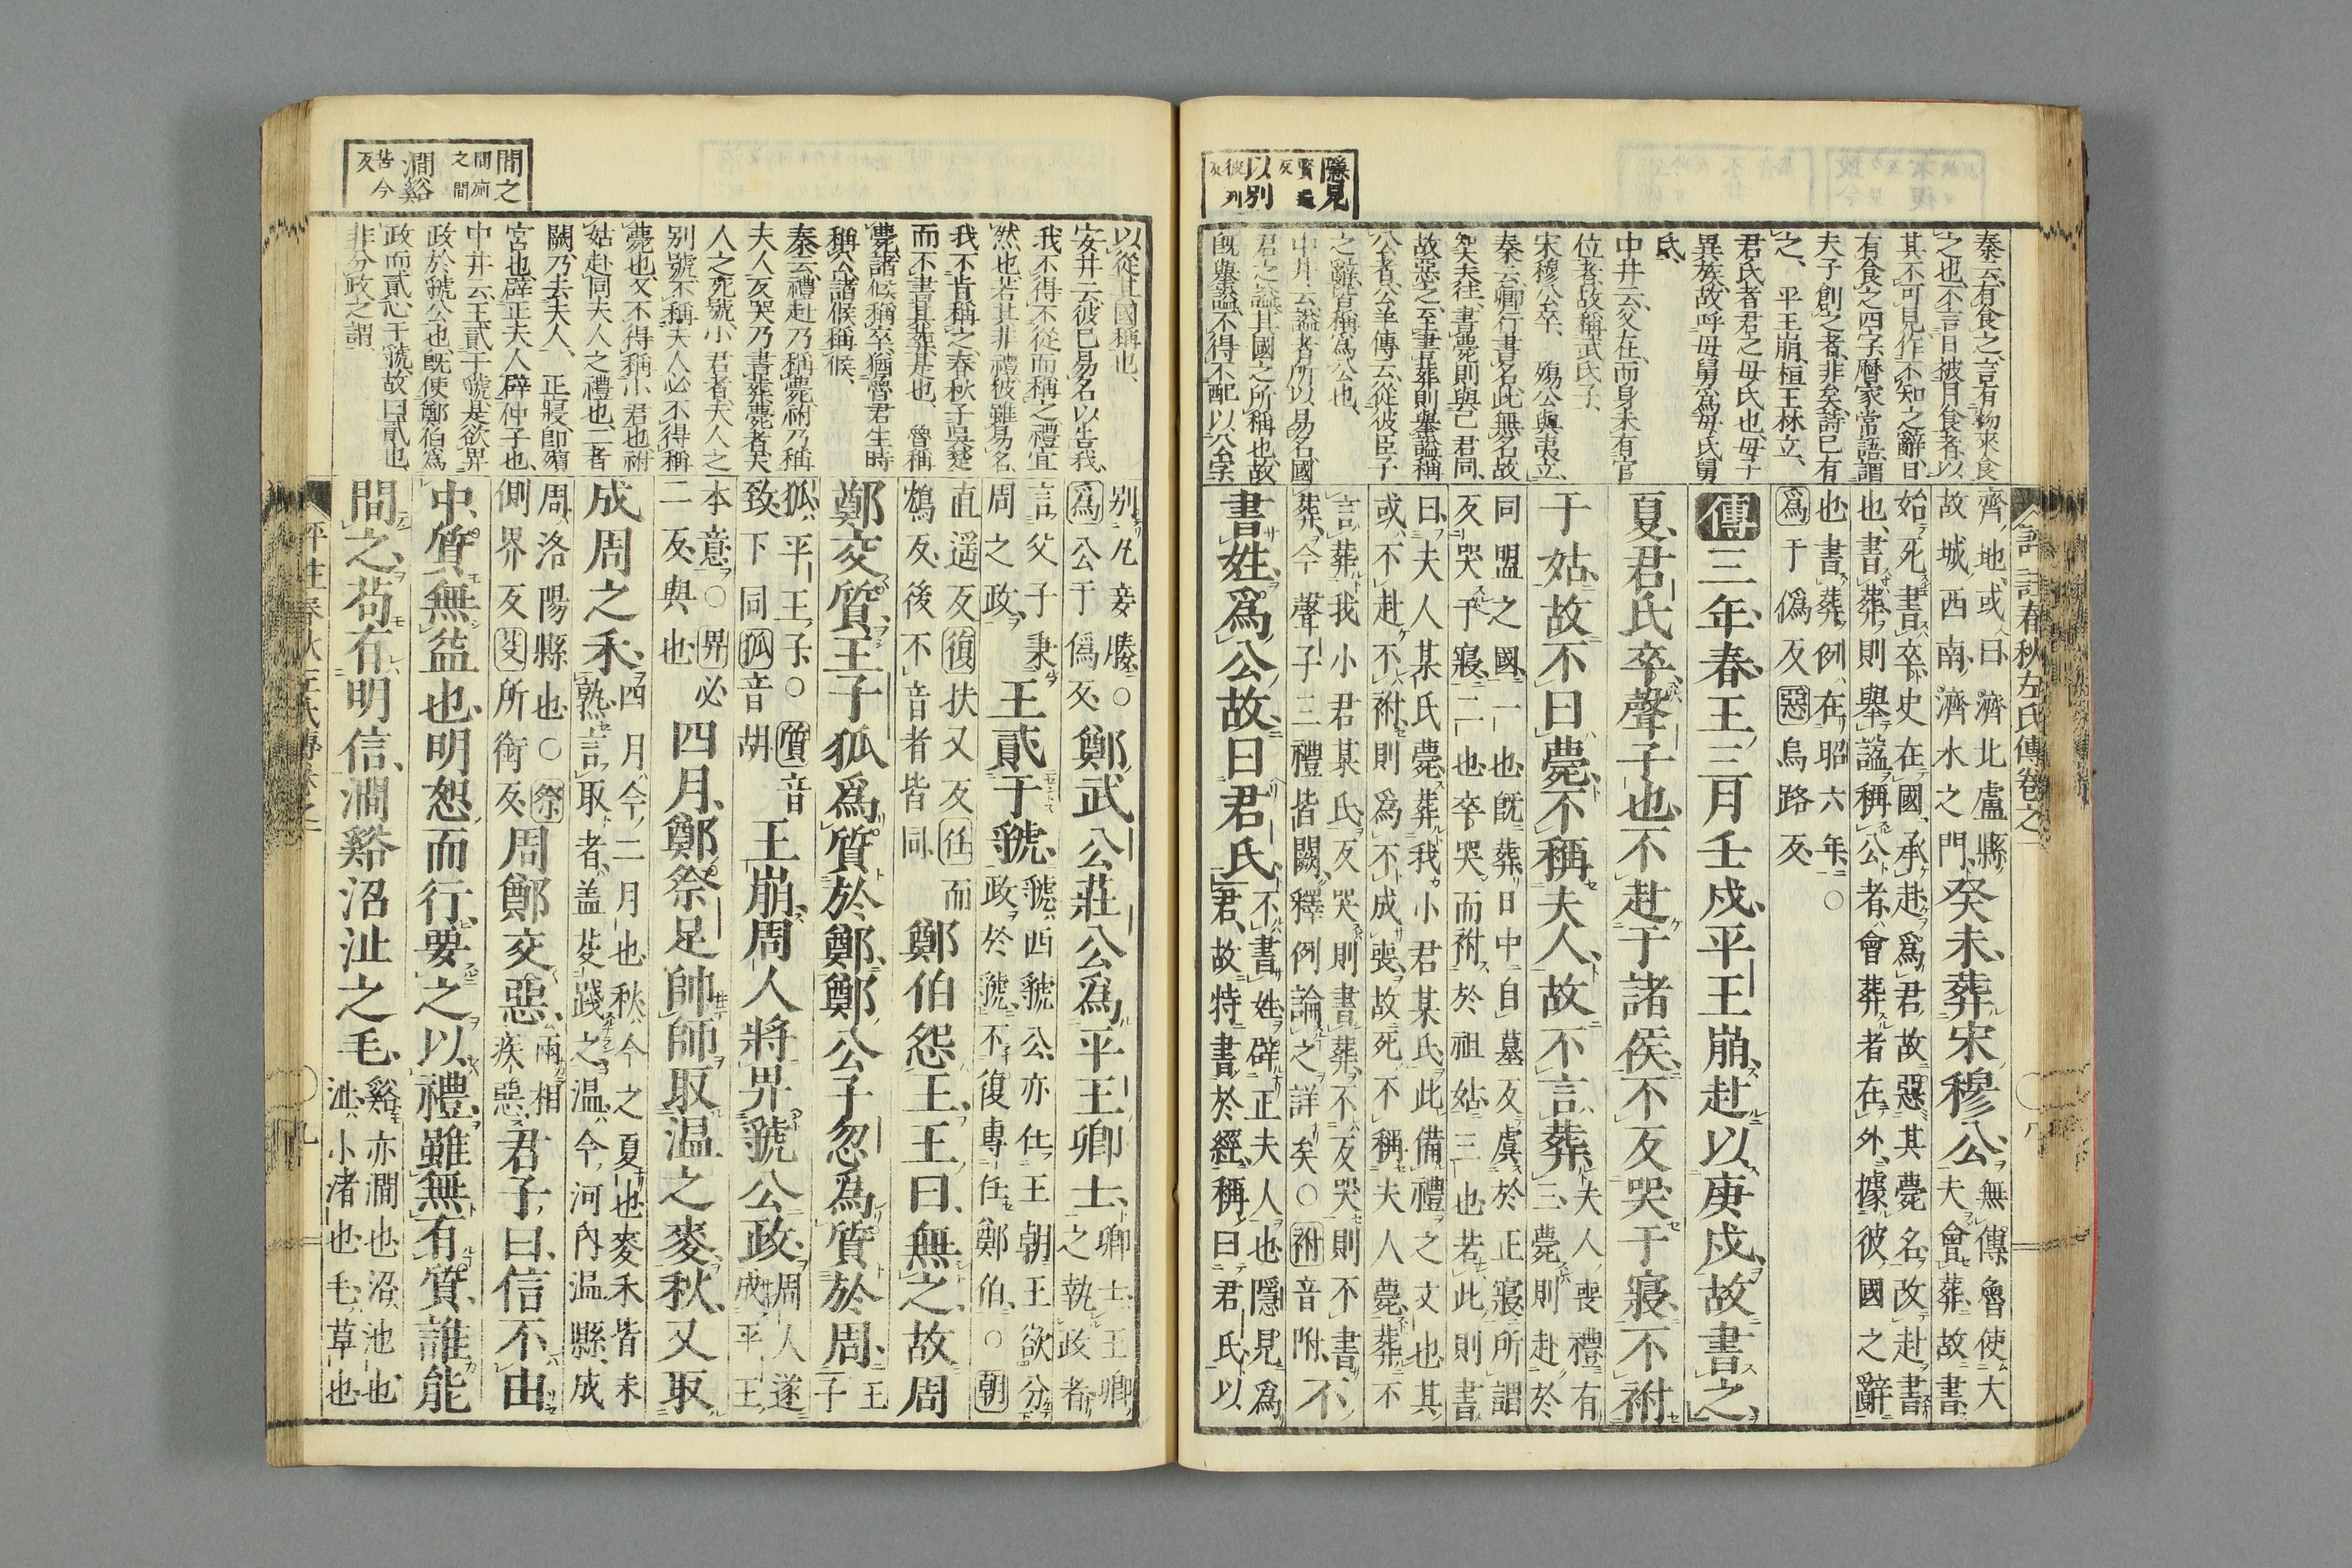 隱見賢遍反
以別彼列反
秦云有食之言有物來食
之也不言日被月食者以
其不可見作不知之辭日
有食之四字曆家常語謂
夫子創之者非矣詩已有
之、平王崩桓王林立、
君氏者君之母氏也母子
異族故呼母舅爲母氏舅
氏、
中井云父在而身未有官
位者故稱武氏子、
宋穆公卒、殤公與夷立、
秦云卿行書名此無名故
故惡之至書葬則舉謚稱
公者公羊傳云從彼臣子
之辭皆稱爲公也、
中井云謚者所以易名國
君之謚其國之所稱也故
既舉謚不得不配以公字
春秋左氏傳卷之一
齊地或曰濟北盧縣
故城西南濟水之門
癸未葬宋穆公
無傳魯使大
夫會葬故書
始死書卒史在國承赴爲君故惡其薨名改赴書
也書葬則舉謚稱公者會葬者在外據彼國之辭
也書葬例在昭六年○
爲于僞反惡烏路反
傳三年春王三月壬戌平王崩赴以庚戌故書之
夏君氏卒聲子也不赴于諸侯不反哭于寢不祔
于姑故不曰薨不稱夫人故不言葬
夫人喪禮有
三薨則赴於
同盟之國一也既葬日中自墓反虞於正寢所謂
反哭于寢二也卒哭而祔於祖姑三也若此則書
曰夫人某氏薨葬我小君某氏此備禮之文也其
或不赴不祔則爲不成喪故死不稱夫人薨葬不
言葬我小君某氏反哭則書葬不反哭則不書
葬今聲子三禮皆闕釋例論之詳矣○祔音附
不
書姓爲公故曰君氏
不書姓辟正夫人也隱見爲
君故特書於經稱曰君氏以
八
間之間廁之間
澗谿苦今反
以從其國稱也、
安井云彼已易名以告我、
我不得不從而稱之禮宜
然也若其非禮彼雖易名
我不肯稱之春秋子吳楚
而不書其葬是也、魯稱
薨諸候稱卒猶魯君生時
稱公諸候稱候、
秦云禮赴乃稱薨祔乃稱
夫人反哭乃書葬薨者夫
人之死號小君者夫人之
別號不稱夫人必不得稱
薨也又不得稱小君也祔
姑赴同夫人之禮也二者
闕乃去夫人、正寢即殯
宮也辟正夫人辟仲子也
中井云王貳于虢是欲畀
政於虢公也既使鄭伯爲
政而貳心于虢故曰貳也
非分政之謂、
別凡妾媵○
爲公于僞反
鄭武公莊公爲平王卿士
卿士王卿
之執政者
言父子秉
周之政
王貳于虢
虢西虢公亦仕王朝王欲分
政於虢不復專任鄭伯○朝
直遥反復扶又反任而
鴆反後不音者皆同
鄭伯怨王王曰無之故周
鄭交質王子狐爲質於鄭鄭公子忽爲質於周
王
子
狐平王子○質音
致下同狐音胡
王崩周人將畀虢公政
周人遂
成平王
本意○畀必
二反與也
四月鄭祭足帥師取温之麥秋又取
成周之禾
四月今二月也秋今之夏也麥禾皆未
熟言取者盖芟踐之温今河內温縣成
周洛陽縣也○祭
側界反芟所銜反
周鄭交惡
兩相
疾惡
君子曰信不由
中質無益也明恕而行要之以禮雖無有質誰能
間之苟有明信澗谿沼沚之毛
谿亦澗也沼池也
沚小渚也毛草也
九